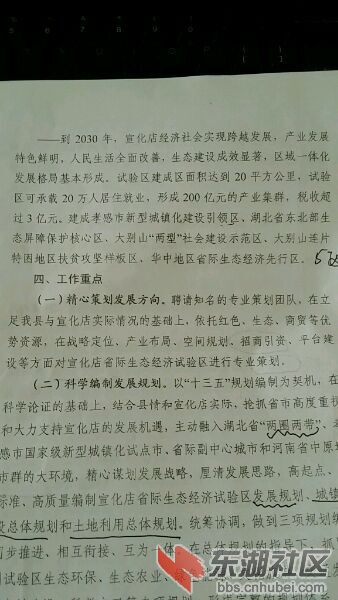 ——到 2030 年，宣化店经济社会实现跨越发展，产业发展
特色鲜明，人民生活全面改善，生态建设成效显著，区域一体化
发展格局基本形成。试验区建成区面积达到 20 平方公里，试验
区可承载 20 万人居住就业，形成 200 亿元的产业集群，税收超
过 3 亿元。建成孝感市新型城镇化建设引领区、湖北省东北部生
态屏障保护核心区、大别山“两型”社会建设示范区、大别山连片
特困地区扶贫攻坚样板区、华中地区省际生态经济先行区。
四、工作重点
（一）精心策划发展方向。聘请知名的专业策划团队，在立
足我县与宣化店实际情况的基础上，依托红色、生态、商贸等优
势资源，在战略定位、产业布局、空间规划、招商引资、平台建
设等方面对宣化店省际生态经济试验区进行专业策划。
（二）科学编制发展规划。以“十三五”规划编制为契机，在
科学论证的基础上，结合县情和宣化店实际、抢抓省市高度重
和大力支持宣化店的发展机遇，主动融入湖北省“两圈两带”、
感市国家级新型城镇化试点市、省际副中心城市和河南省中原城
市群的大环境，精心谋划发展战略，厘清发展思路，高起点、
标准、高质量编制宣化店省际生态经济试验区发展规划、城镇
设总体规划和土地利用总体规划，统筹协调，做到三项规划编
同步推进、相互衔接、互为一体。在总体规划的指导下，抓
试验区生态环保、生态农业、
东湖社区
bbs.cnhubei.com